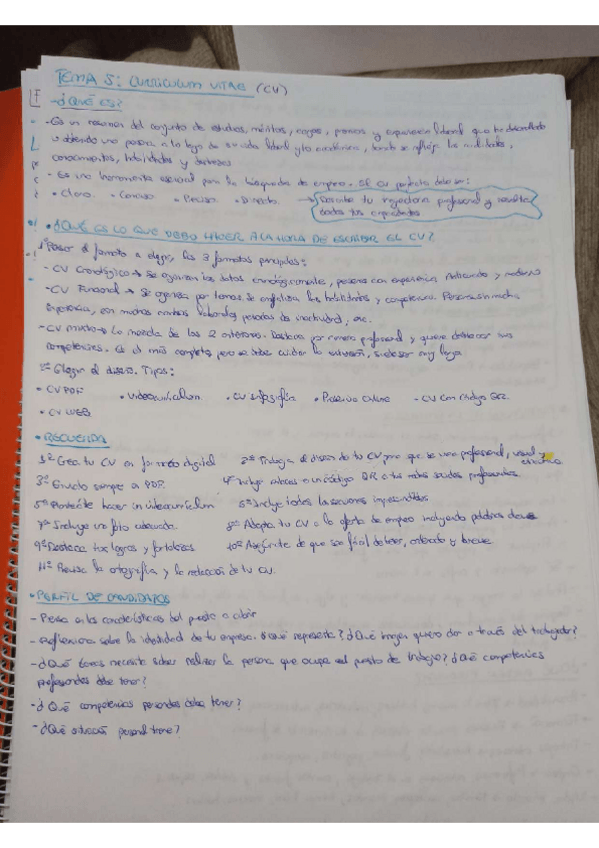 TEMA 5: CURRICULUM VITAE (CV)
- ¿QUÉ ES?
- Es un resumen del conjunto de estudios, méritos, cargos, premios y experiencia laboral que ha desarrollado
u obtenido una persona a lo largo de su vida laboral y/o académica, donde se refleja las
conocimientos, habilidades y
- Es una herramienta esencial para la búsqueda de empleo. El CV perfecto debe ser:
• Claro. • Conciso • Preciso • Directo. → Describe tu trayectoria profesional y resulta
todas tus capacidades
• ¿QUÉ ES LO QUE DEBO HACER A LA HORA DE ESCRIBIR EL CV?
Pensar el formato a elegir, las 3 formatos principales:
- CV Cronológico → Se organizan los datos cronológicamente, personas con experiencia. Anticuado y
- CV Funcional → Se organiza por temas se enfatiza las habilidades y competencia. Personas sin mucha
experiencia, con muchos cambios laborales, periodos de inactividad, etc.
- CV Mixto → La mezcla de los 2 anteriores. Destaca por carrera profesional y quiere destacar sus
competencias. Es el más completo, pero se debe cuidar la extensión, suele ser muy larga
Elegir el diseño. Tipos:
• CV PDF • Videocurriculum • CV infografía • Online - CV con código QR.
• CV WEB
• RECUERDA
1º Crea tu CV en formato digital 2º Trabaja el diseño de tu CV para que sea profesional, visual y
3º Envíalo siempre en PDF. 4º Incluye enlaces o un código QR a tus redes sociales profesionales
5º Plantéate hacer un videocurriculum 5º Incluye todas las secciones imprescindibles
7º Incluye una foto adecuada. 8º Adapta tu CV a la oferta de empleo incluyendo palabras clave
9º Destaca tus logros y fortalezas 10º Asegúrate de que sea fácil de leer, ordenado y breve
11º Revisa la ortografía y la redacción de tu CV.
• PERFIL DE CANDIDATOS
- Piensa en las características del puesto a cubrir
- Reflexiona sobre la identidad de tu empresa. ¿Qué representa? ¿Qué imagen quiero dar a través del trabajador?
- ¿Qué tareas necesita saber realizar la persona que ocupa el puesto de trabajo? ¿Qué competencias
profesionales debe tener?
- ¿Qué competencias personales debe tener?
- ¿Qué situación personal tiene?